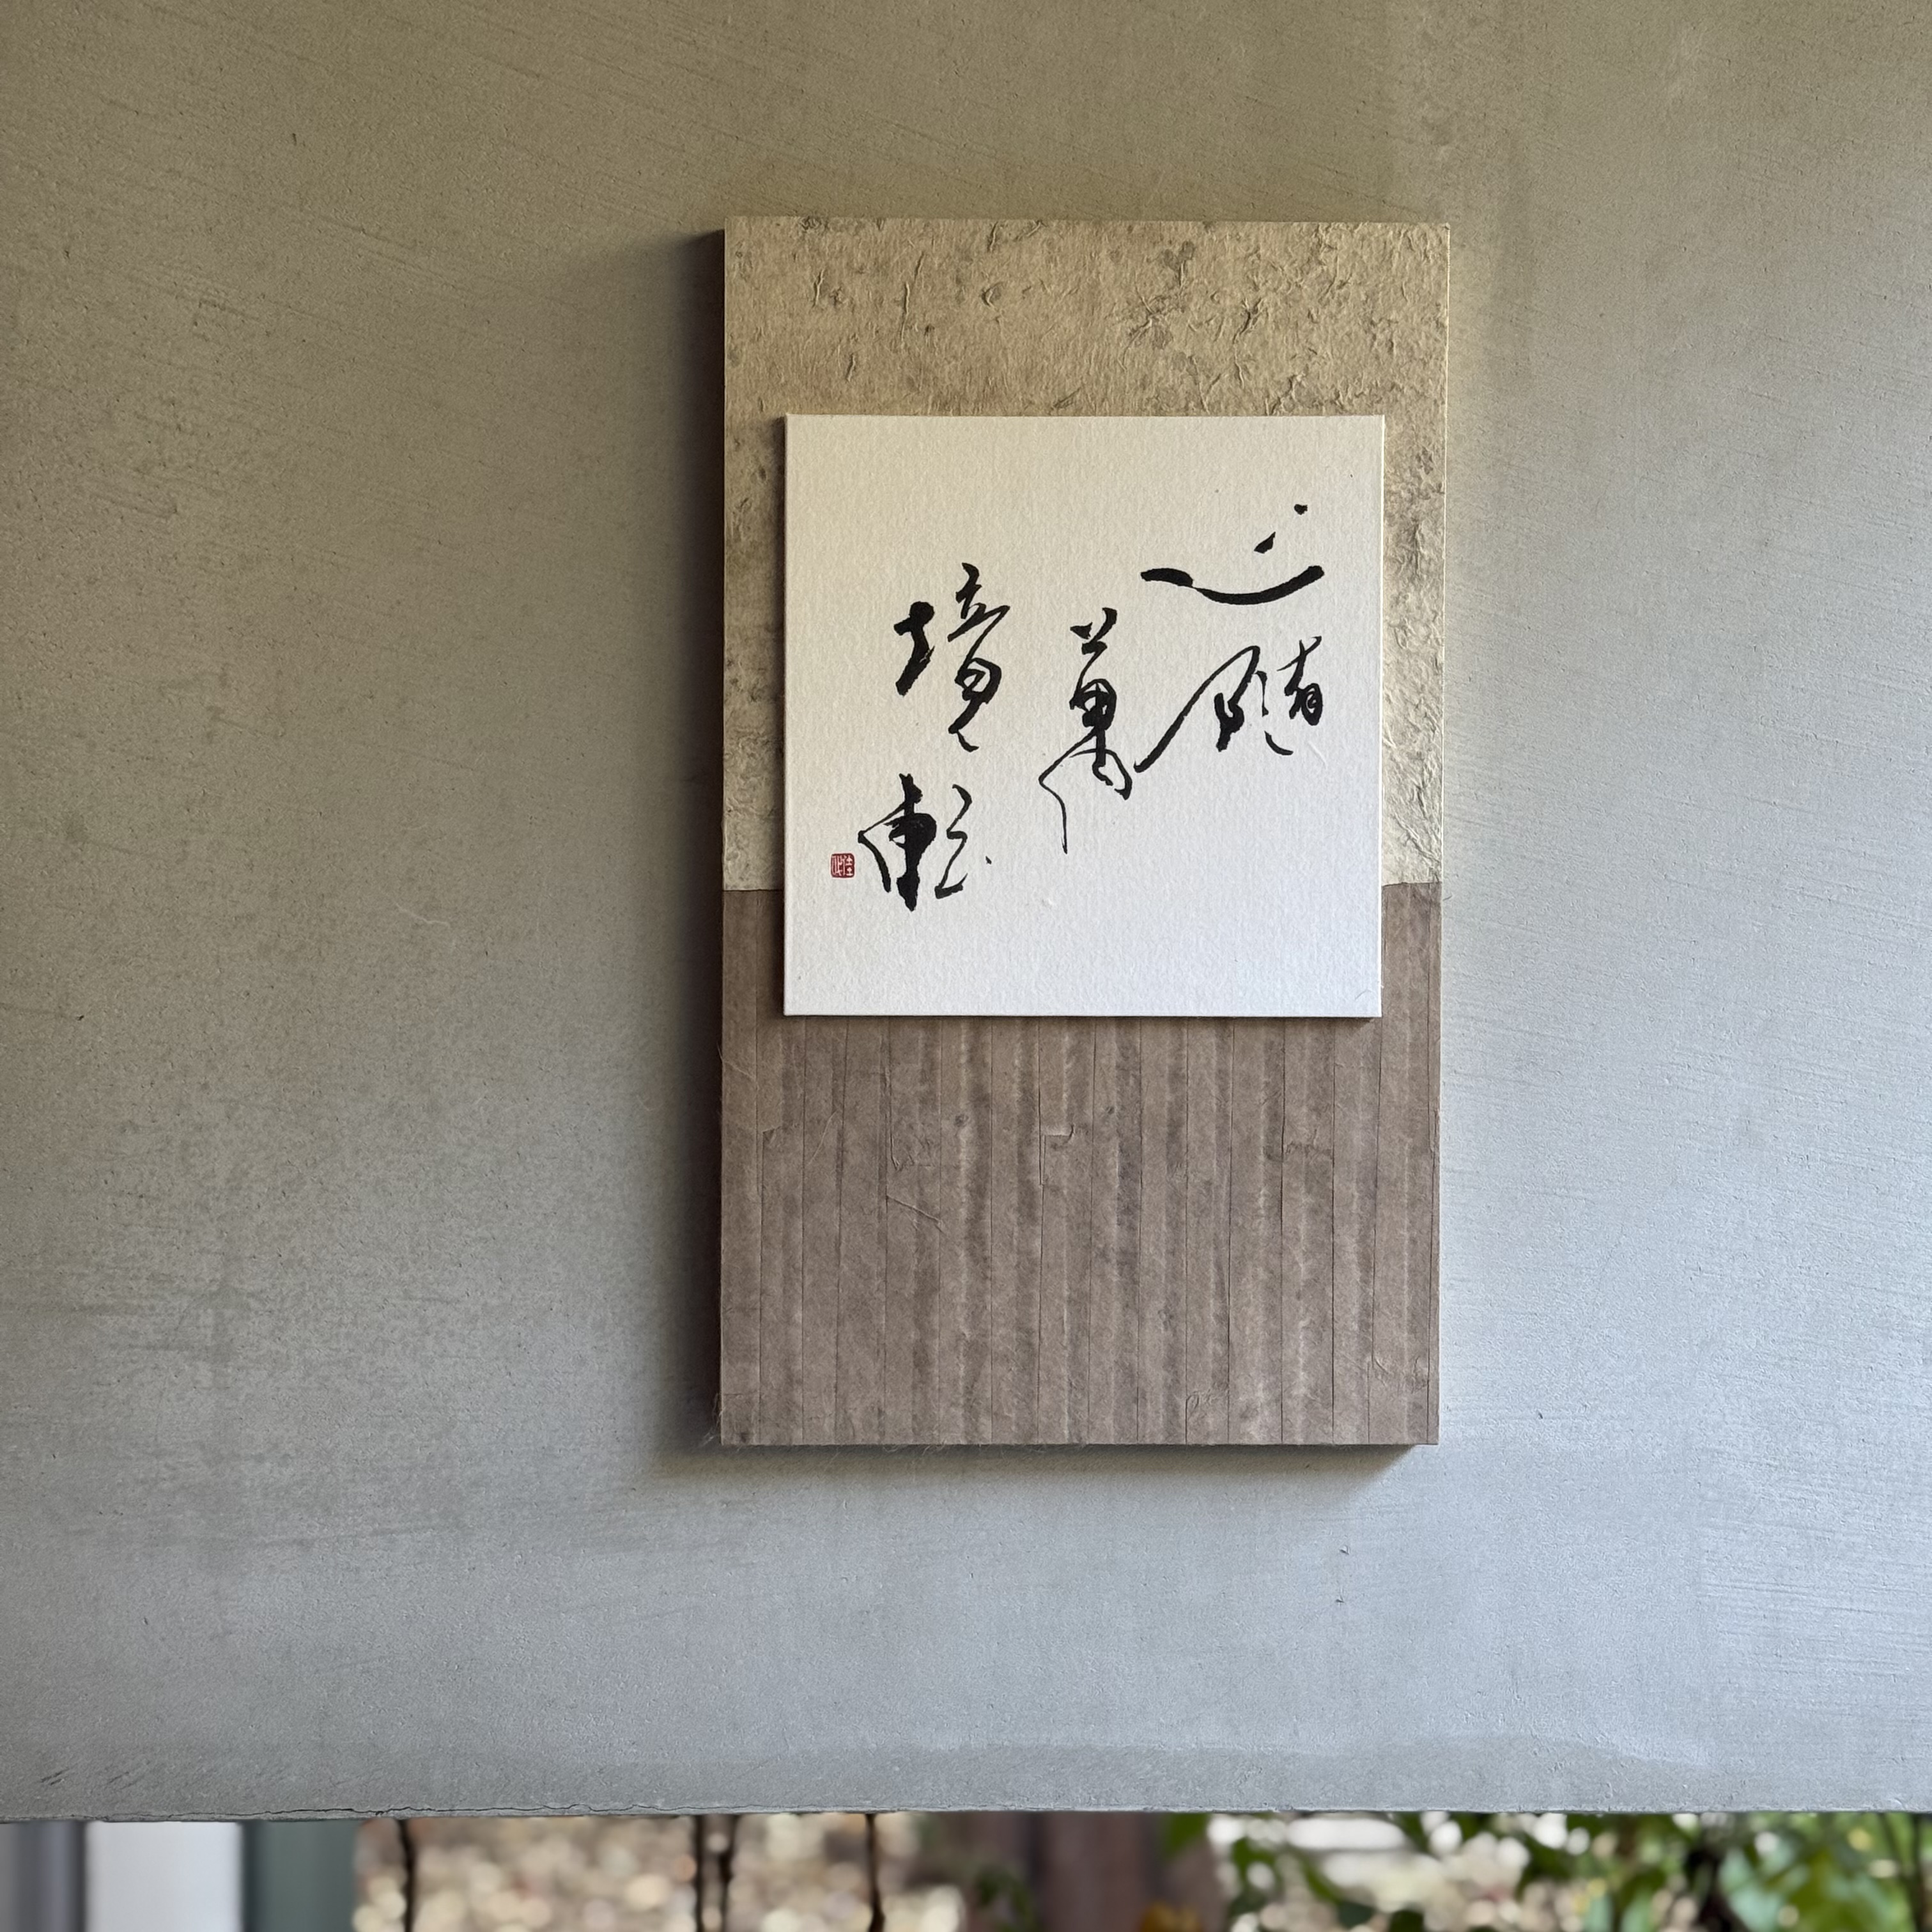 心随
萬
境転